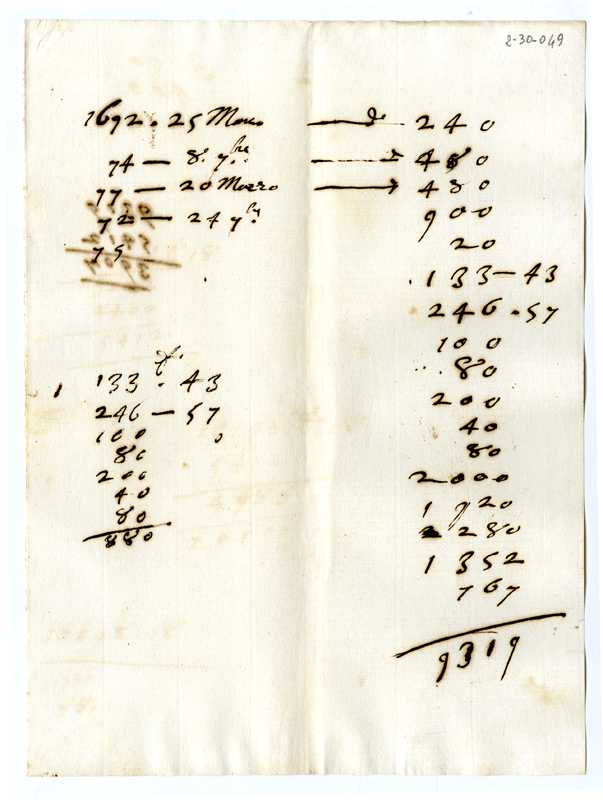 2-30-049
1692 . 25 Marzo 240
74 — 8. 7bre 480
77 — 20 Marzo 480
72 — 24 7br. 900
75 20
133 — 43
246 . 57
100
80
200
40
80
2000
1920
280
1352
767
9319
1 133 . 43
246 — 57
100 0
80
200
40
80
880